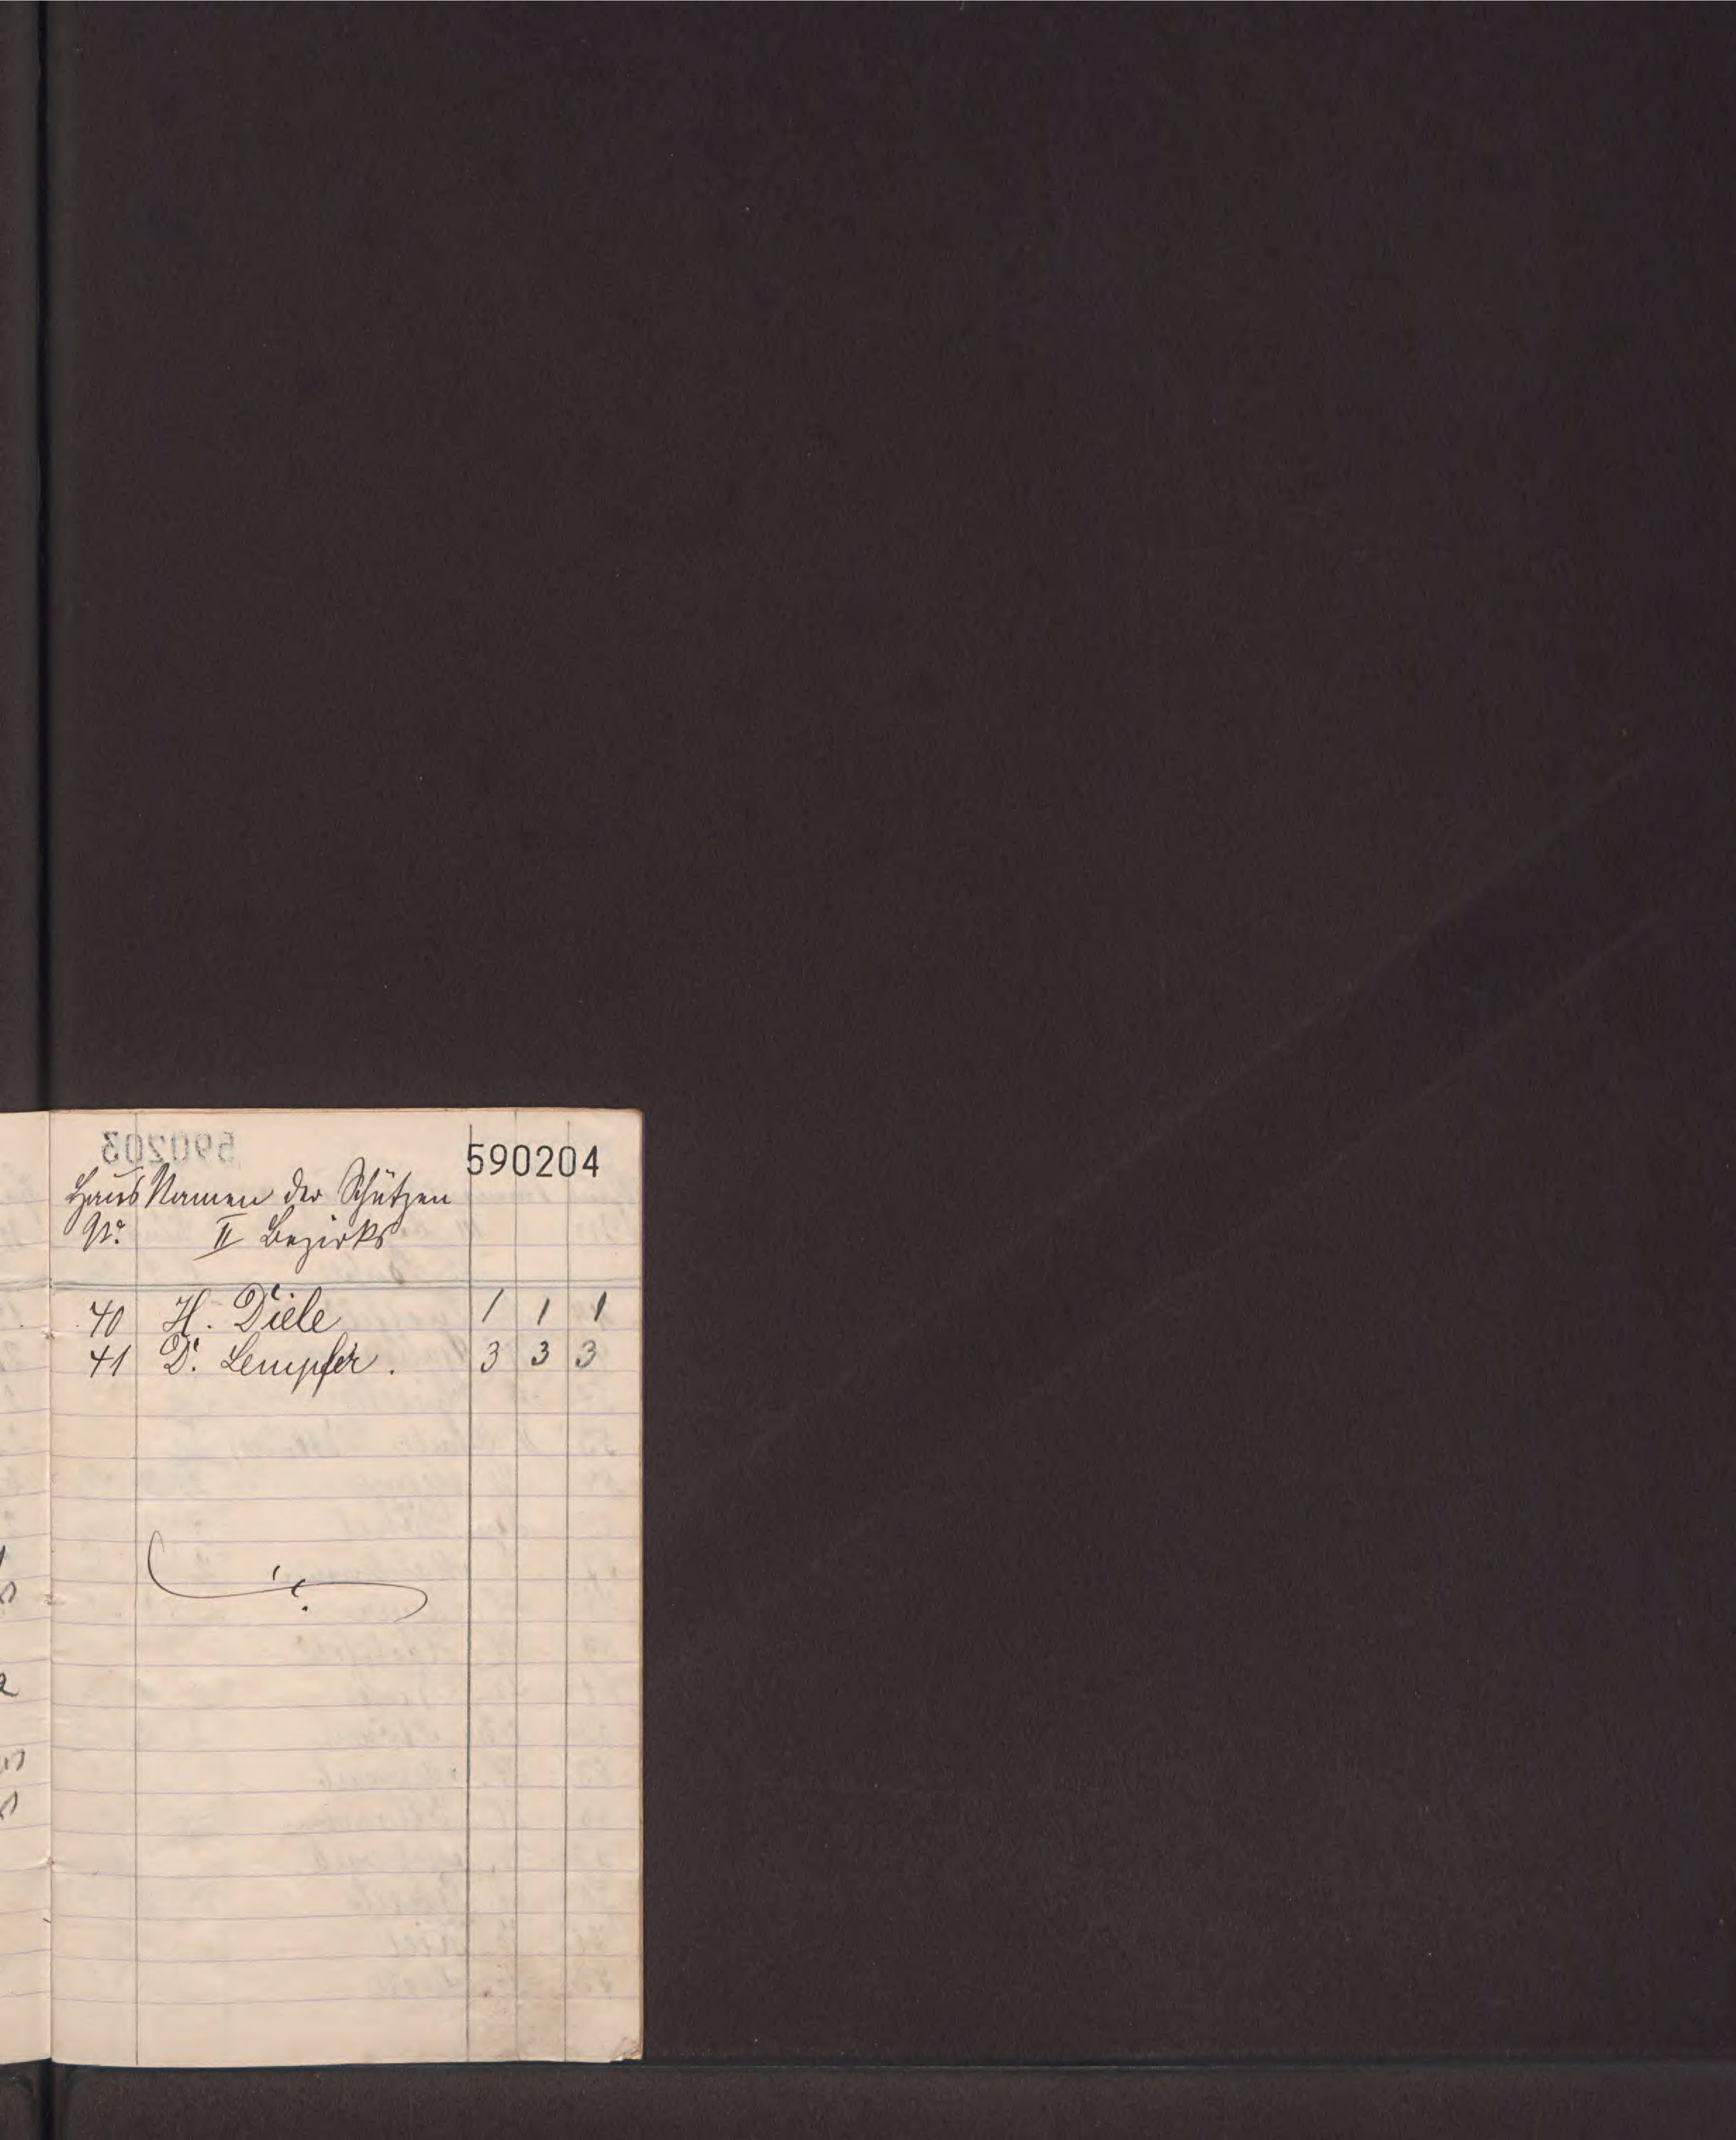 590204
Haus Namen der Schützen
No. II Bezirks
40 H. Diele 1 1 1
41 D. Lempfer. 3 3 3